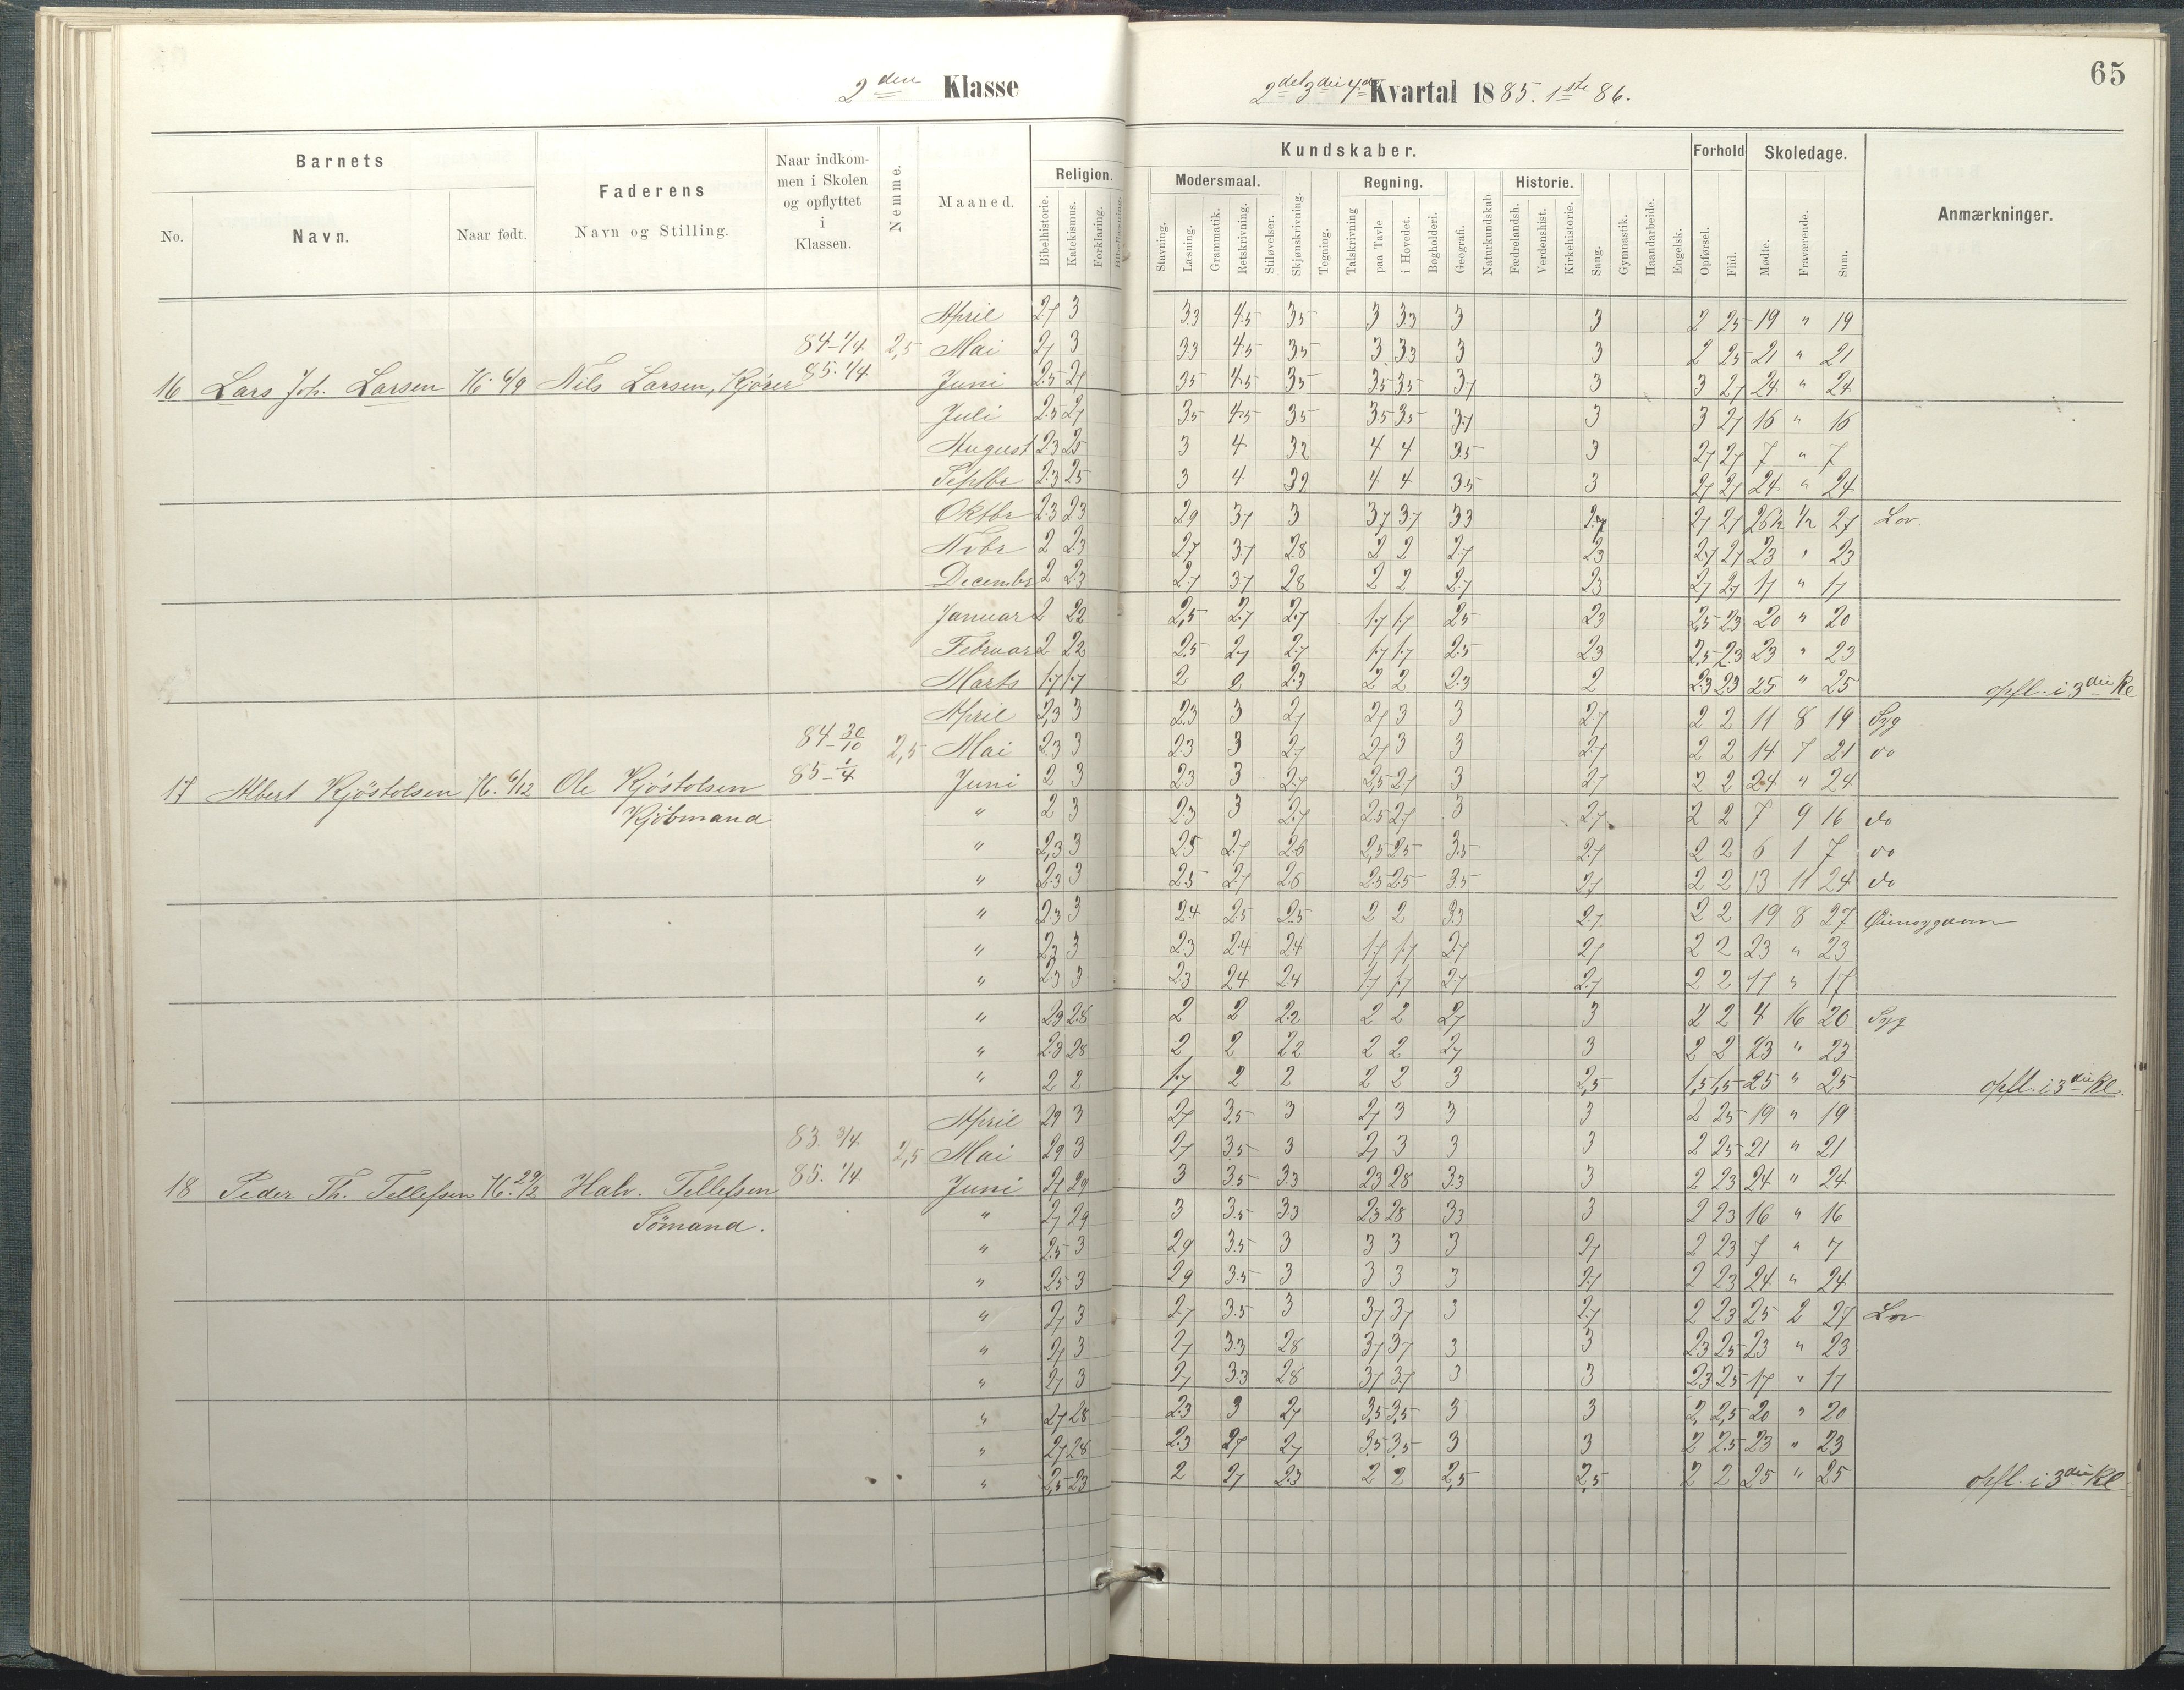 65
2den Klasse 2det 3die 4de Kvartal 1885. 1ste 86.
Barnets Faderens Naar indkommen i Skolen og opflyttet i Klassen. Nemme. Maaned. Religion. Kundskaber. Forhold Skoledage. Anmærkninger.
Modersmaal. Regning. Historie.
No. Navn. Naar født. Navn og Stilling. Bibelhistorie. Katekismus. Forklaring. Bibellæsning. Stavning. Læsning. Grammatik. Retskrivning. Stiløvelser. Skjønskrivning. Tegning. Talskrivning paa Tavle i Hovedet. Bogholderi. Geografi. Naturkundskab Fædrelandsh. Verdenshist. Kirkehistorie. Sang. Gymnastik. Haandarbeide. Engelsk. Opførsel. Flid. Mødte. Fraværende. Sum.
April 2.7 3 3.3 4.5 3.5 3 3.3 3 3 2 2.5 19 " 19
84-1/4 2,5 Mai 2.7 3 3.3 4.5 3.5 3 3.3 3 3 2 2.5 21 " 21
16 Lars Joh. Larsen 76. 6/9 Nils Larsen, Kjører 85. 1/4 Juni 2.5 2.7 3.5 4.5 3.5 3.5 3.5 3.7 3 3 2.7 24 " 24
Juli 2.5 2.7 3.5 4.5 3.5 3.5 3.5 3.7 3 3 2.7 16 " 16
August 2.3 2.5 3 4 3.2 4 4 3.5 3 2.7 2.7 7 " 7
Septbr 2.3 2.5 3 4 3.2 4 4 3.5 3 2.7 2.7 24 " 24
Oktbr 2.3 2.3 2.9 3.7 3 3.7 3.7 3.3 2.7 2.7 2.7 26½ ½ 27 Lov.
Nobr 2 2.3 2.7 3.7 2.8 2 2 2.7 2.3 2.7 2.7 23 " 23
Decembr 2 2.3 2.7 3.7 2.8 2 2 2.7 2.3 2.7 2.7 17 " 17
Januar 2 2.2 2,5 2.7 2.7 1.7 1.7 2.5 2.3 2.5 2.3 20 " 20
Februar 2 2.2 2.5 2.7 2.7 1.7 1.7 2.5 2.3 2,5 2.3 23 " 23
Marts 1.7 1.7 2 2 2.3 2 2 2.3 2 2.3 2.3 25 " 25 opfl. i 3die Kl
April 2,3 3 2.3 3 2.7 2.7 3 3 2.7 2 2 11 8 19 Syg
84-30/10 2,5 Mai 2.3 3 2.3 3 2.7 2.7 3 3 2.7 2 2 14 7 21 do
17 Albert Kjöstolsen 76. 6/12 Ole Kjöstolsen 85-1/4 Juni 2 3 2.3 3 2.7 2,5 2.7 3 2.7 2 2 24 " 24
Kjöbmand " 2 3 2.3 3 2.7 2.5 2.7 3 2.7 2 2 7 9 16 do
" 2,3 3 2.5 2.7 2.6 2,5 2.5 3.5 2.7 2 2 6 1 7 do
" 2.3 3 2.5 2.7 2.6 2.5 2.5 3.5 2.7 2 2 13 11 24 do
" 2.3 3 2.4 2.5 2.5 2 2 3.3 2.7 2 2 19 8 27 Øiensygdom
" 2.3 3 2.3 2.4 2.4 1.7 1.7 2.7 2.7 2 2 23 " 23
" 2.3 3 2.3 2.4 2.4 1.7 1.7 2.7 2.7 2 2 17 " 17
" 2.3 2.8 2 2 2.2 2 2 2.7 3 2 2 4 16 20 Syg
" 2.3 2.8 2 2 2.2 2 2 2.7 3 2 2 23 " 23
" 2 2 1.7 2 2 2 2 3 2,5 1,5 1,5 25 " 25 opfl. i 3die Kl.
April 2.9 3 2.7 3.5 3 2.7 3 3 3 2 2.5 19 " 19
83. 3/4 2,5 Mai 2.9 3 2.7 3.5 3 2.7 3 3 3 2 2.5 21 " 21
18 Peder Th. Tellefsen 76. 29/2 Halv. Tellefsen 85. 1/4 Juni 2.7 2.9 3 3.5 3.3 2.3 2.8 3.3 3 2 2.3 24 " 24
Sömand. " 2.7 2.9 3 3.5 3.3 2.3 2.8 3.3 3 2 2.3 16 " 16
" 2.5 3 2.9 3.5 3 3 3 3 2.7 2 2.3 7 " 7
" 2.5 3 2.9 3.5 3 3 3 3 2.7 2 2.3 24 " 24
" 2.7 3 2.7 3.5 3 3.7 3.7 3 2.7 2 2.3 25 2 27 Lov
" 2.7 3 2.7 3.3 2.8 3.7 3.7 3 3 2.3 2.5 23 " 23
" 2.7 3 2.7 3.3 2.8 3.7 3.7 3 3 2.3 2.5 17 " 17
" 2.7 2.8 2.3 3 2.7 3,5 3,5 3 3 2 2,5 20 " 20
" 2.7 2.8 2.3 2.7 2.7 3.5 3.5 3 3 2 2.5 23 " 23
" 2,5 2.3 2 2.7 2.3 2 2 2,5 2,5 2 2 25 " 25 opfl. i 3die Kl